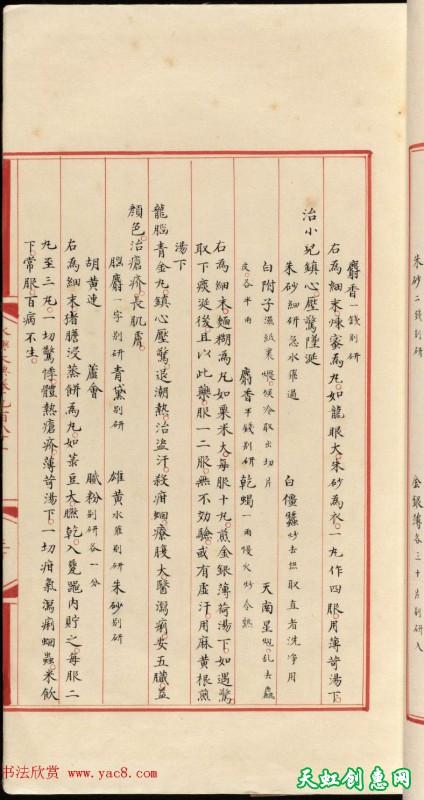 朱砂二錢別研
金銀薄各三十片別研入
麝香一錢別研
右為細末煉蜜為丸如龍眼大朱砂為衣一丸作四服用薄荷湯下
治小兒鎮心壓驚墜涎
朱砂細研急水飛過
白僵蠶炒去絲取直者洗淨用
白附子濕紙裹煨候冷取出切片
天南星
皮各半兩
麝香半錢別研
乾蝎一兩慢火炒令熟
右為細末麵糊為丸如粟米大每服十丸煎金銀薄荷湯下如遇驚
取下痰涎後且以此藥服一二服無不効驗或有虛汗用麻黃根煎
湯下
龍腦青金丸鎮心壓驚退潮熱治盜汗殺疳蛔療腹大醫瀉痢安五臟益
顏色治瘡疥長肌膚
腦麝一字別研
青黛別研
雄黃水飛別研
朱砂別研
胡黃連
蘆會
膩粉別研各一分
右為細末猪膽浸蒸餅為丸如菉豆大曬乾入甆罐內貯之每服二
丸至三丸一切驚悸體熱瘡疥薄荷湯下一切疳氣瀉痢蛔蟲米飲
下常服百病不生
书法欣赏 www.yac8.com
天虹创惠网